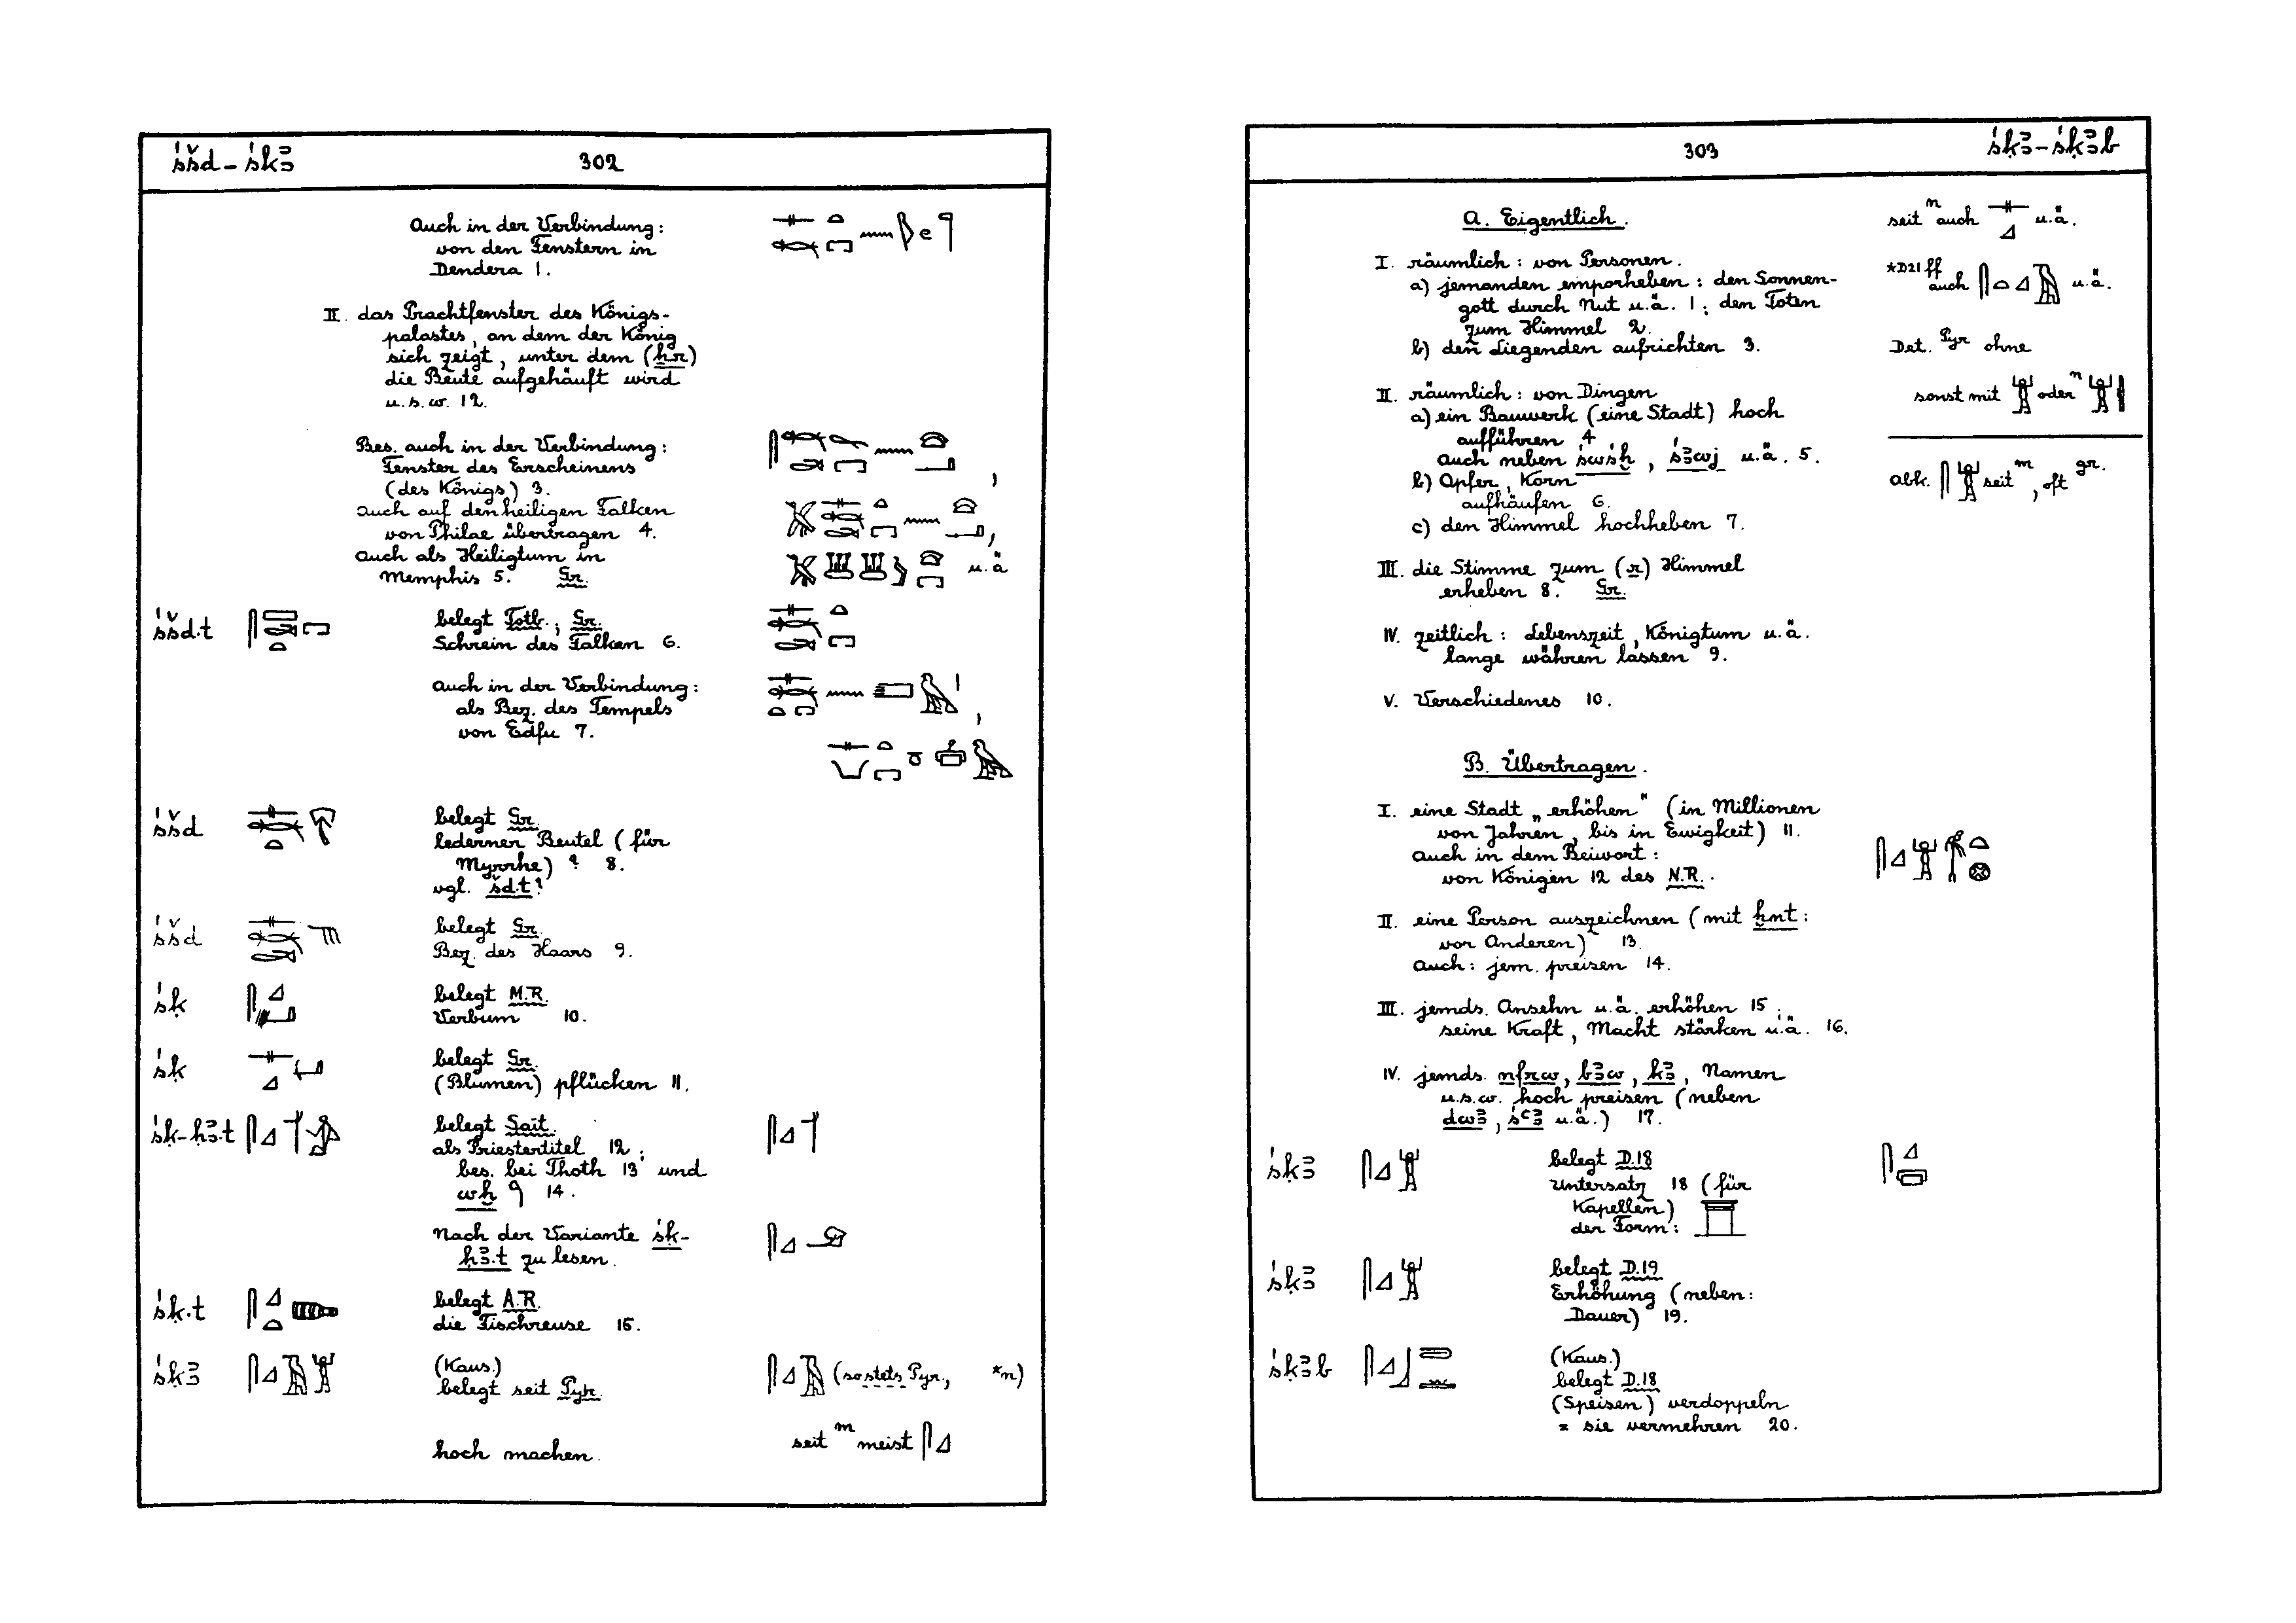 śšd – śḳꜣ
302
Auch in der Verbindung:
von den Fenstern in
Dendera 1.
II. das Prachtfenster des Königs-
palastes, an dem der König
sich zeigt, unter dem (ẖr)
die Beute aufgehäuft wird
u.s.w. 12.
Bes. auch in der Verbindung:
Fenster des Erscheinens
(des Königs) 3.
auch auf den heiligen Falken
von Philae übertragen 4.
Auch als Heiligtum in
Memphis 5. Gr.
u.ä
śšd.t
belegt Totb., Gr.
Schrein des Falken 6.
auch in der Verbindung:
als Bez. des Tempels
von Edfu 7.
śšd
belegt Gr.
lederner Beutel (für
Myrrhe) ? 8.
vgl. šd.t?
śšd
belegt Gr.
Bez. des Haars 9.
śḳ
belegt M.R.
Verbum 10.
śḳ
belegt Gr.
(Blumen) pflücken 11.
śḳ-ḥꜣ.t
belegt Sait.
als Priestertitel 12;
bes. bei Thoth 13 und
wḫ 14.
Nach der Variante śḳ-
ḥꜣ.t zu lesen.
śḳ.t
belegt A.R.
die Fischreuse 15.
śḳꜣ
(Kaus.)
belegt seit Pyr.
(so stets Pyr., *n)
hoch machen.
seit m meist
303
śḳꜣ – śḳꜣb
A. Eigentlich.
seit n auch u.ä.
I. räumlich: von Personen.
a) jemanden emporheben: den Sonnen-
gott durch Nut u.ä. 1; den Toten
zum Himmel 2.
b) den Liegenden aufrichten 3.
*D21 ff
auch u.ä.
Det. Pyr ohne
sonst mit oder n
II. räumlich: von Dingen
a) ein Bauwerk (eine Stadt) hoch
aufführen 4
auch neben śwśḫ, śꜣwj u.ä. 5.
b) Opfer, Korn
aufhäufen 6.
c) den Himmel hochheben 7.
abk. seit m, oft gr.
III. die Stimme zum (r) Himmel
erheben 8. Gr.
IV. zeitlich: Lebenszeit, Königtum u.ä.
lange währen lassen 9.
V. Verschiedenes 10.
B. Übertragen.
I. eine Stadt „erhöhen" (in Millionen
von Jahren, bis in Ewigkeit) 11.
auch in dem Beiwort:
von Königen 12 des N.R.
II. eine Person auszeichnen (mit ḫnt:
vor Anderen) 13.
Auch: jem. preisen 14.
III. jemds. Ansehn u.ä. erhöhen 15;
seine Kraft, Macht stärken u.ä. 16.
IV. jemds. nfrw, bꜣw, kꜣ, Namen
u.s.w. hoch preisen (neben
dwꜣ, śꜥꜣ u.ä.) 17.
śḳꜣ
belegt D.18
Untersatz 18 (für
Kapellen)
der Form:
śḳꜣ
belegt D.19
Erhöhung (neben:
Dauer) 19.
śḳꜣb
(Kaus.)
belegt D.18
(Speisen) verdoppeln
= sie vermehren 20.